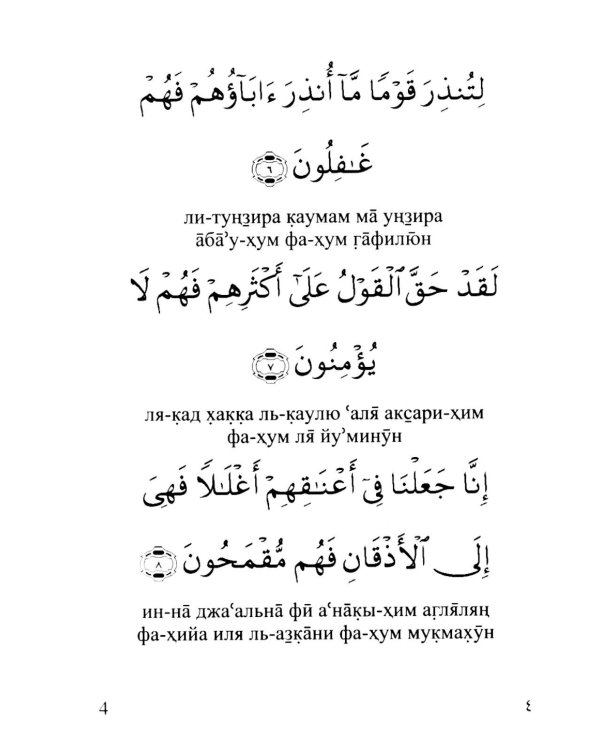 لِتُنذِرَ قَوْمًا مَّآ أُنذِرَ ءَابَآؤُهُمْ فَهُمْ
غَـٰفِلُونَ ٦
ли-тун̣з̱ира к̣аумам ма̄ ун̣з̱ира
а̄ба̄’у-х̣ум фа-х̣ум г̣а̄филю̄н
لَقَدْ حَقَّ ٱلْقَوْلُ عَلَىٰٓ أَكْثَرِهِمْ فَهُمْ لَا
يُؤْمِنُونَ ٧
ля-к̣ад х̣ак̣к̣а ль-к̣аулю ‘аля̄ акс̱ари-х̣им
фа-х̣ум ля̄ йу’минӯн
إِنَّا جَعَلْنَا فِىٓ أَعْنَـٰقِهِمْ أَغْلَـٰلًا فَهِىَ
إِلَى ٱلْأَذْقَانِ فَهُم مُّقْمَحُونَ ٨
ин-на̄ джа‘альна̄ фӣ а‘на̄к̣ы-х̣им аг̣ля̄лян̣
фа-х̣ийа иля ль-аз̱к̣а̄ни фа-х̣ум мук̣мах̣ӯн
4
٤